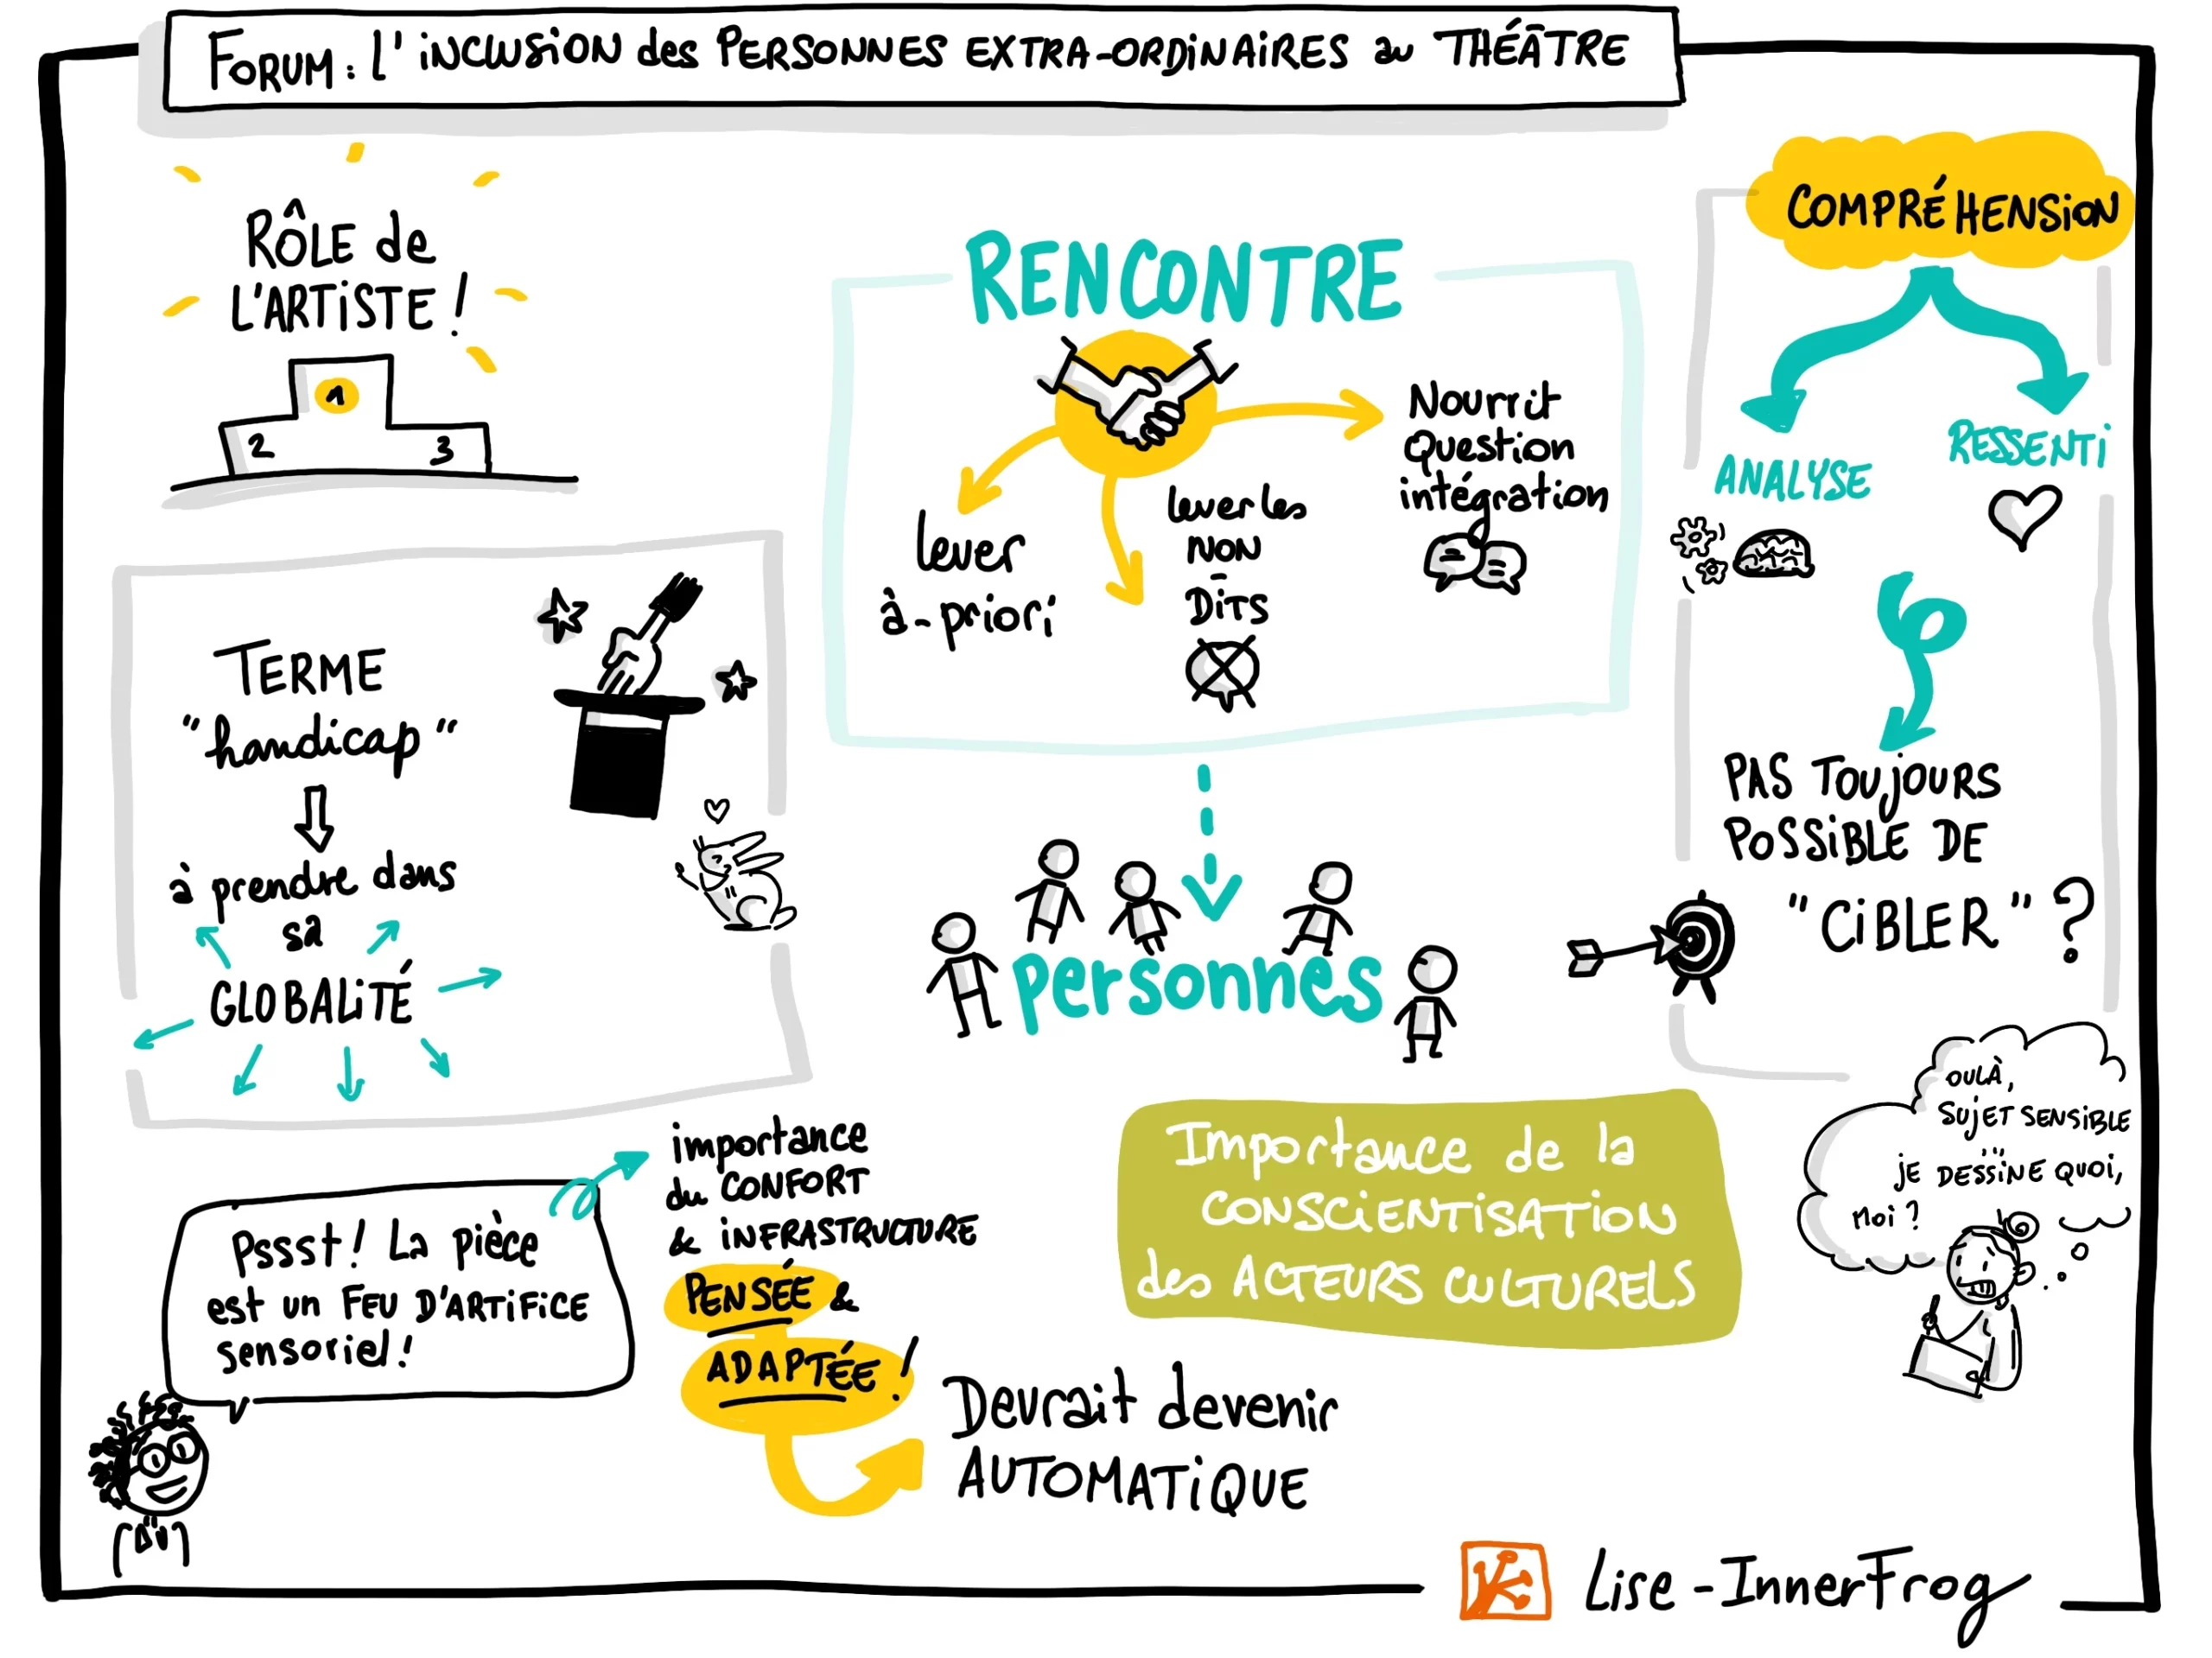 FORUM : L'iNCLUSiON des PERSONNES EXTRA-ORDiNAiRES au THÉÂTRE
RÔLE de
L'ARTiSTE !
1
2
3
TERME
"handicap"
à prendre dans
sa
GLOBALiTÉ
RENCONTRE
Nourrit
Question
intégration
lever
à-priori
lever les
NON
-
DiTS
personnes
COMPRÉHENSiON
ANALYSE
RESSENTi
PAS TOUjOURS
POSSiBLE DE
"CiBLER" ?
OULÀ,
SUjET SENSiBLE
...
jE DESSiNE QUOi,
MOi ?
Pssst ! La pièce
est un FEU D'ARTiFiCE
sensoriel !
importance
du CONFORT
& iNFRASTRUCTURE
PENSÉE &
ADAPTÉE !
Devrait devenir
AUTOMATiQUE
Importance de la
CONSCiENTiSATiON
des ACTEURS CULTURELS
Lise - InnerFrog